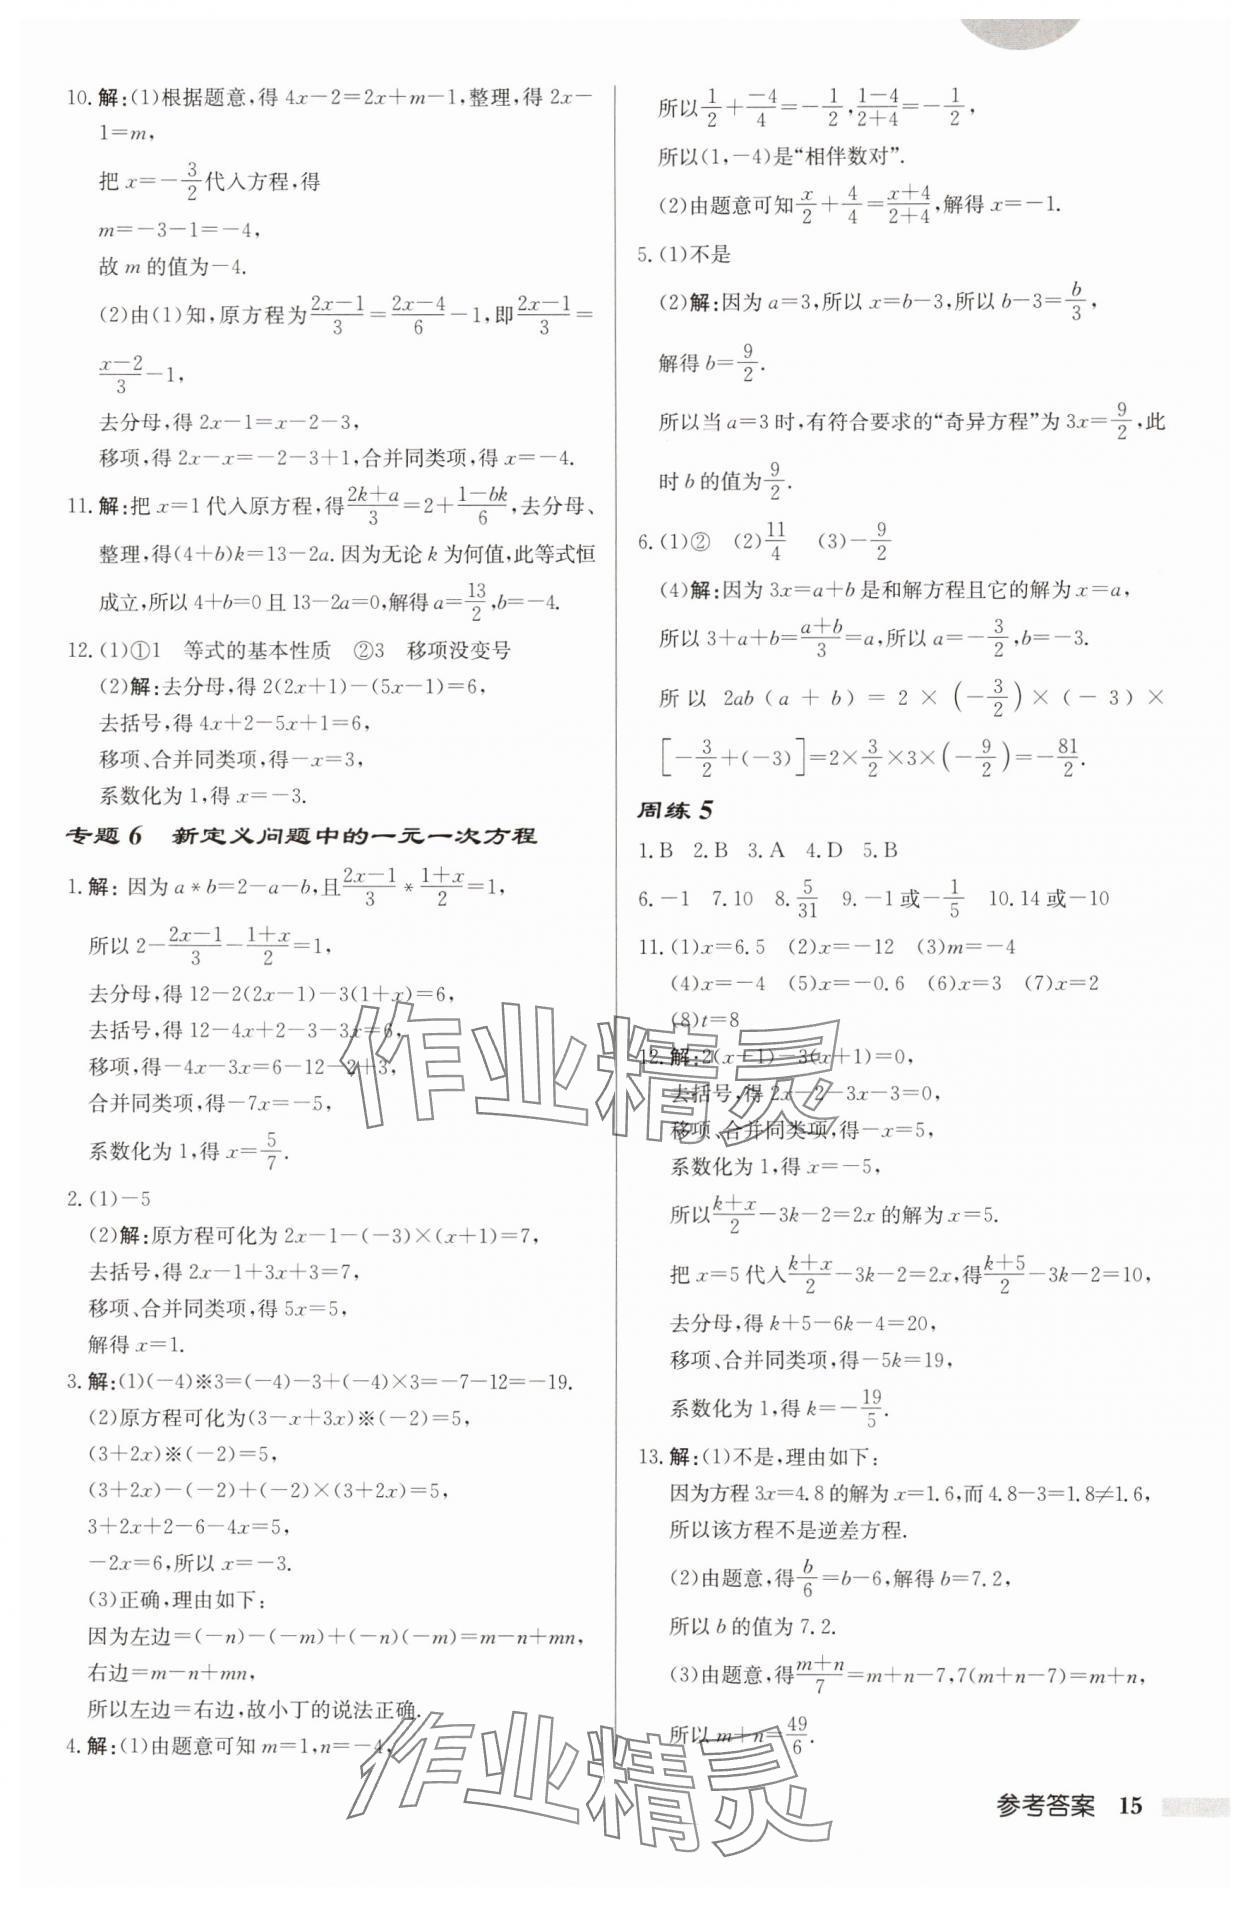 10. 解:(1)根据题意,得 4x-2=2x+m-1,整理,得 2x-
1=m,
把 x=-3/2代入方程,得
m=-3-1=-4,
故 m 的值为-4.
(2)由(1)知,原方程为(2x-1)/3=(2x-4)/6-1,即(2x-1)/3=
(x-2)/3-1,
去分母,得 2x-1=x-2-3,
移项,得 2x-x=-2-3+1,合并同类项,得 x=-4.
11. 解:把 x=1 代入原方程,得(2k+a)/3=2+(1-bk)/6,去分母、
整理,得(4+b)k=13-2a.因为无论 k 为何值,此等式恒
成立,所以 4+b=0 且 13-2a=0,解得 a=13/2,b=-4.
12. (1)①1 等式的基本性质 ②3 移项没变号
(2)解:去分母,得 2(2x+1)-(5x-1)=6,
去括号,得 4x+2-5x+1=6,
移项、合并同类项,得-x=3,
系数化为 1,得 x=-3.
专题 6 新定义问题中的一元一次方程
1. 解: 因为 a*b=2-a-b,且(2x-1)/3*(1+x)/2=1,
所以 2-(2x-1)/3-(1+x)/2=1,
去分母,得 12-2(2x-1)-3(1+x)=6,
去括号,得 12-4x+2-3-3x=6,
移项,得-4x-3x=6-12-2+3,
合并同类项,得-7x=-5,
系数化为 1,得 x=5/7.
2. (1)-5
(2)解:原方程可化为 2x-1-(-3)×(x+1)=7,
去括号,得 2x-1+3x+3=7,
移项、合并同类项,得 5x=5,
解得 x=1.
3. 解:(1)(-4)※3=(-4)-3+(-4)×3=-7-12=-19.
(2)原方程可化为(3-x+3x)※(-2)=5,
(3+2x)※(-2)=5,
(3+2x)-(-2)+(-2)×(3+2x)=5,
3+2x+2-6-4x=5,
-2x=6,所以 x=-3.
(3)正确,理由如下:
因为左边=(-n)-(-m)+(-n)(-m)=m-n+mn,
右边=m-n+mn,
所以左边=右边,故小丁的说法正确.
4. 解:(1)由题意可知 m=1,n=-4,
所以1/2+(-4)/4=-1/2,(1-4)/(2+4)=-1/2,
所以(1,-4)是“相伴数对”.
(2)由题意可知x/2+4/4=(x+4)/(2+4),解得 x=-1.
5. (1)不是
(2)解:因为 a=3,所以 x=b-3,所以 b-3=b/3,
解得 b=9/2.
所以当 a=3 时,有符合要求的“奇异方程”为 3x=9/2,此
时 b 的值为9/2.
6. (1)② (2)11/4 (3)-9/2
(4)解:因为 3x=a+b 是和解方程且它的解为 x=a,
所以 3+a+b=(a+b)/3=a,所以 a=-3/2,b=-3.
所以 2ab(a+b)=2×(-3/2)×(-3)×
[-3/2+(-3)]=2×3/2×3×(-9/2)=-81/2.
周练 5
1. B 2. B 3. A 4. D 5. B
6. -1 7. 10 8. 5/31 9. -1 或-1/5 10. 14 或-10
11. (1)x=6.5 (2)x=-12 (3)m=-4
(4)x=-4 (5)x=-0.6 (6)x=3 (7)x=2
(8)t=8
12. 解:2(x-1)-3(x+1)=0,
去括号,得 2x-2-3x-3=0,
移项、合并同类项,得-x=5,
系数化为 1,得 x=-5,
所以(k+x)/2-3k-2=2x 的解为 x=5.
把 x=5 代入(k+x)/2-3k-2=2x,得(k+5)/2-3k-2=10,
去分母,得 k+5-6k-4=20,
移项、合并同类项,得-5k=19,
系数化为 1,得 k=-19/5.
13. 解:(1)不是,理由如下:
因为方程 3x=4.8 的解为 x=1.6,而 4.8-3=1.8≠1.6,
所以该方程不是逆差方程.
(2)由题意,得b/6=b-6,解得 b=7.2,
所以 b 的值为 7.2.
(3)由题意,得(m+n)/7=m+n-7,7(m+n-7)=m+n,
所以 m+n=49/6.
作业精灵
作业精灵
参考答案 15